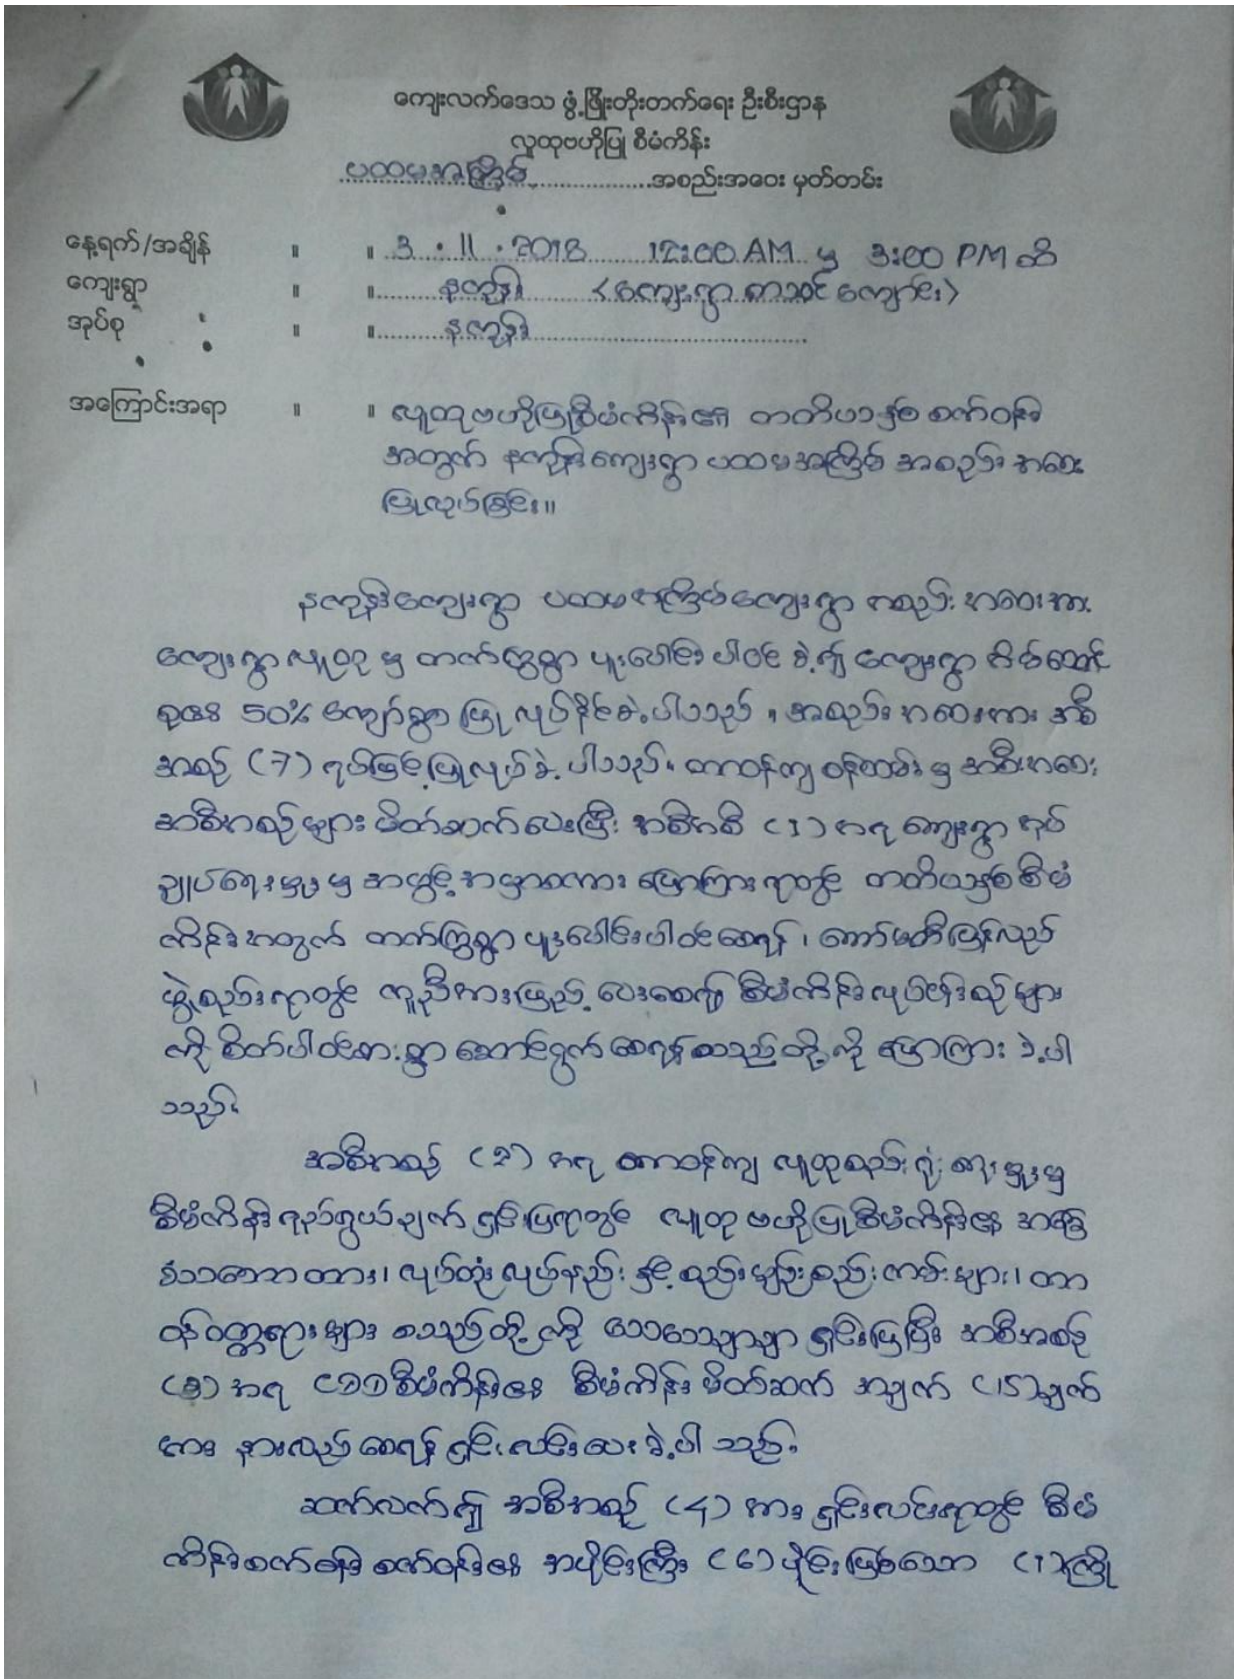 ကျေးလက်ဒေသ ဖွံ့ဖြိုးတိုးတက်ရေး ဦးစီးဌာန
လူထုဗဟိုပြု စီမံကိန်း
ပထမအကြိမ် အစည်းအဝေး မှတ်တမ်း
နေ့ရက်/အချိန် ။ ။ 3.11.2018 12:00 AM မှ 3:00 PM ထိ
ကျေးရွာ ။ ။ နကုန်း <ကျေးရွာ စာသင်ကျောင်း>
အုပ်စု ။ ။ နကုန်း
အကြောင်းအရာ ။ ။ လူထုဗဟိုပြုစီမံကိန်း၏ တတိယနှစ် စက်ဝန်း
အတွက် နကုန်းကျေးရွာ ပထမအကြိမ် အစည်းအဝေး
ပြုလုပ်ခြင်း။
နကုန်းကျေးရွာ ပထမအကြိမ်ကျေးရွာ အစည်းအဝေးအား
ကျေးရွာလူထုမှ တက်ကြွစွာ ပူးပေါင်းပါဝင်ခဲ့၍ ကျေးရွာ အိမ်ထောင်
စု၏ 50% ကျော်စွာ ပြုလုပ်နိုင်ခဲ့ပါသည်။ အစည်းအဝေးအား အစီ
အစဉ် (7) ရပ်ဖြင့် ပြုလုပ်ခဲ့ပါသည်။ တာဝန်ကျ ဝန်ထမ်းမှ အစည်းအဝေး
အစီအစဉ်များ မိတ်ဆက်ပေးပြီး အစီအစဉ် (1) အရ ကျေးရွာ အုပ်
ချုပ်ရေးမှူးမှ အဖွင့်အမှာစကား ပြောကြားရာတွင် တတိယနှစ်စီမံ
ကိန်းအတွက် တက်ကြွစွာ ပူးပေါင်းပါဝင်စေရန်၊ ကော်မတီပြန်လည်
ဖွဲ့စည်းရာတွင် ကူညီအားဖြည့်ပေးစေ၍ စီမံကိန်းလုပ်ငန်းစဉ်များ
ကို စိတ်ပါဝင်စားစွာ ဆောင်ရွက်စေရန် စသည်တို့ကို ပြောကြားခဲ့ပါ
သည်။
အစီအစဉ် (2) အရ တာဝန်ကျ လူထုစည်းရုံးရေးမှူးမှ
စီမံကိန်းရည်ရွယ်ချက် ရှင်းပြရာတွင် လူထုဗဟိုပြုစီမံကိန်း၏ အခြေ
ခံသဘောတရား၊ လုပ်ထုံးလုပ်နည်းနှင့် စည်းမျဉ်းစည်းကမ်းများ၊ တာ
ဝန်ဝတ္တရားများ စသည်တို့ကို သေသေချာချာ ရှင်းပြပြီး အစီအစဉ်
(3) အရ CDD စီမံကိန်း၏ စီမံကိန်းမိတ်ဆက် အချက် (15)ချက်
အား နားလည်စေရန် ရှင်းလင်းပေးခဲ့ပါသည်။
ဆက်လက်၍ အစီအစဉ် (4) အား ရှင်းလင်းရာတွင် စီမံ
ကိန်းစက်ဝန်း စက်ဝန်း၏ အပိုင်းကြီး (6)ပိုင်းဖြစ်သော (1)ကြို